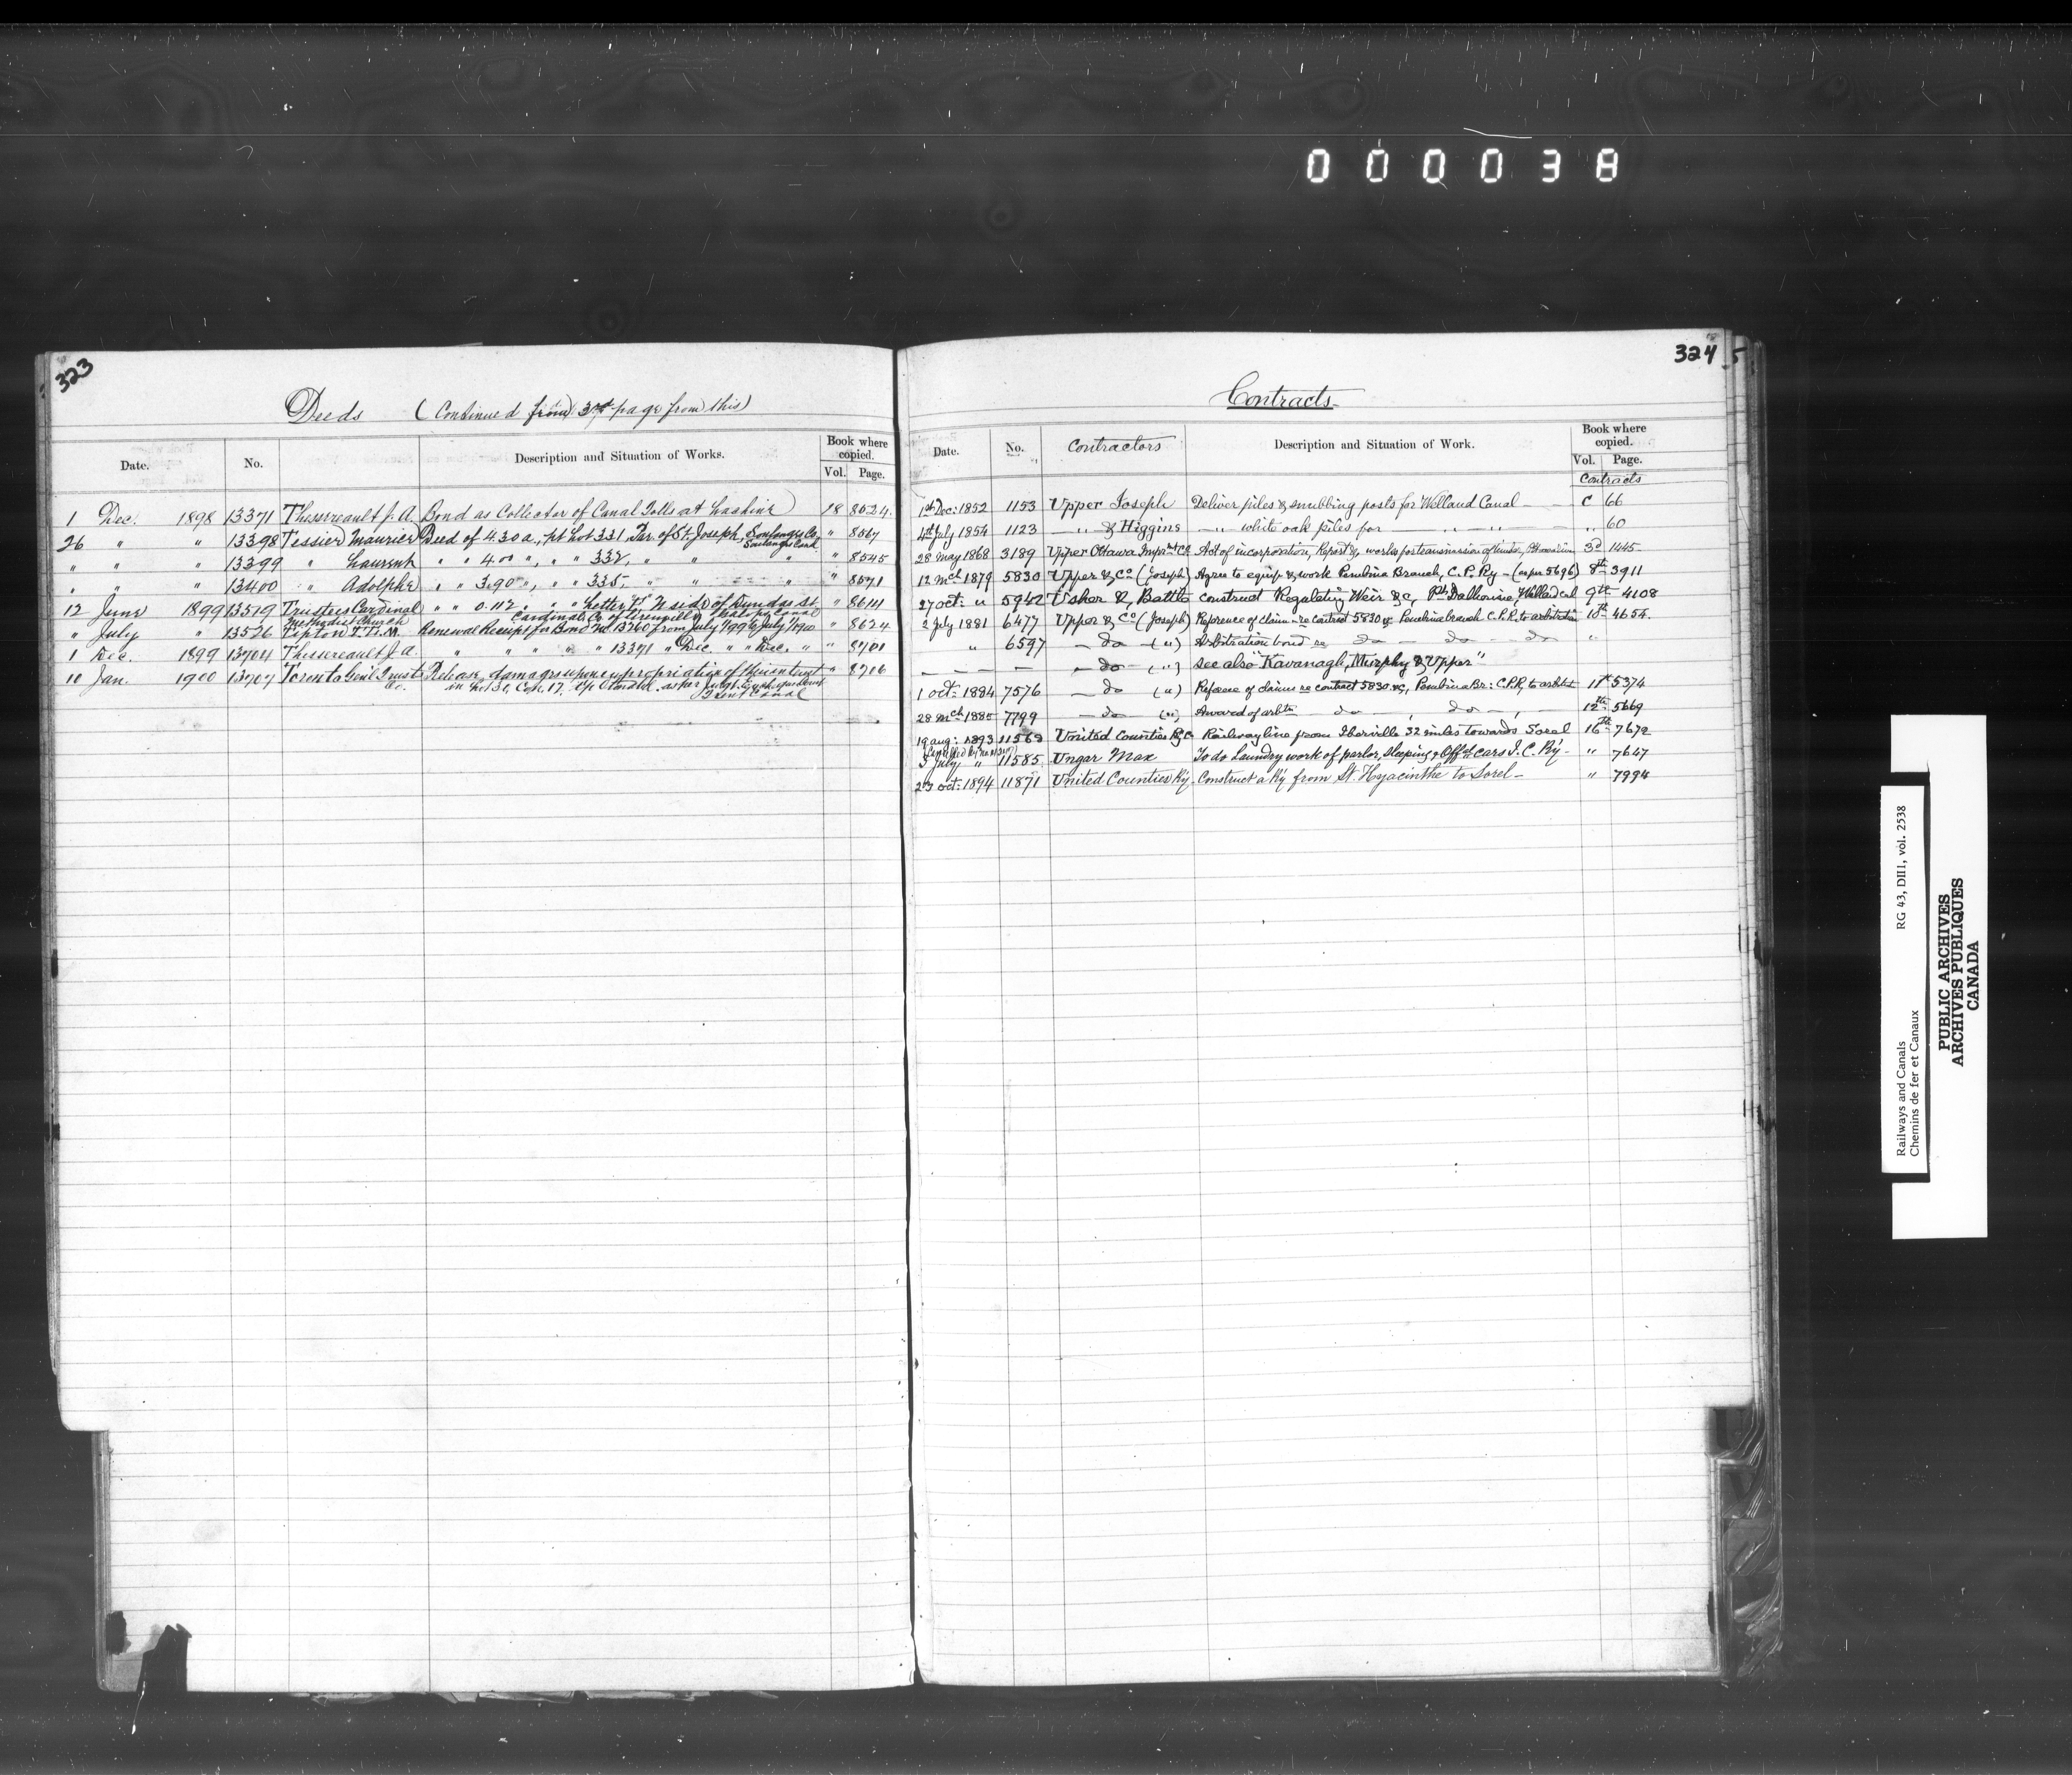 000038
323
Deeds (Continued from 3rd page from this)
Date. No. Description and Situation of Works. Book where copied. Vol. Page.
1 Dec. 1898 13371 Thessereault J. A. Bond as Collector of Canal Tolls at Lachine 18 8524
26 " " 13398 Tessier Maurice Deed of 4.30 a., pt Lot 331 Par. of St. Joseph, Soulanges Co, " 8567
Soulanges Canal
" " " 13399 " Laurent " " 4.00 ", " " 332, " " " " 8545
" " " 13400 " Adolphe " " 3.90 ", " " 335, " " " " 8571
12 June 1899 13519 Trustees Cardinal " " 0.112 " " " Letter "F" N side of Dundas St. " 8614
Methodist Church Cardinal, Co. of Grenville, Galops Canal
" July " 13526 Tipton T. T. M. Renewal Receipt for Bond No 13260 from July 1/99 to July 1/1900 " 8624
1 Dec. 1899 13704 Thessereault J. A. " " " " " 13371 " Dec. " " Dec. " " 8701
10 Jan. 1900 13707 Toronto Genl Trusts Release, damages upon expropriation of " 8716
Co. in Lot 30, Con. 17, Tp as per Judgt.
Trent Canal
324
5
Contracts
Date. No. Contractors Description and Situation of Work. Book where copied. Vol. Page.
Contracts
1st Dec: 1852 1153 Upper Joseph Deliver piles & snubbing posts for Welland Canal — C 66
4th July 1854 1123 — " & Higgins — " white oak piles for — " — " — " 60
28 May 1868 3189 Upper Ottawa Impmt Co Act of incorporation, Report &c, works for transmission of timber, 3d 1445
12 Mch 1879 5830 Upper & Co (Joseph) Agree to equip & work Pembina Branch, C. P. Ry — (as per 5696) 8th 3911
27 Oct: " 5942 Usher & Battle Construct Regulating Weir &c, Pt Dalhousie, Welland Cal 9th 4108
2 July 1881 6477 Upper & Co (Joseph) Reference of claim — re contract 5830 &c Pembina branch C.P.R. to arbitration 10th 4654
" 6597 — do — (") Arbitration bond re — do — do — do "
— — — — do — (") See also "Kavanagh, Murphy & Upper"
1 Oct: 1884 7576 — do (") Reference of claims re contract 5830 &c, Pembina Br: C.P.R, to arbitrn 11th 5374
28 Mch 1885 7799 — do — (") Award of arbtn — do — , do — , — 12th 5669
19 Aug: 1893 11563 United Counties Ry Co Railway line from Iberville 32 miles towards Sorel 16th 7672
3 July " 11585 Ungar Max To do Laundry work of parlor, sleeping & Off. cars I. C. Ry — " 7647
23 Oct: 1894 11871 United Counties Ry Construct a Ry from St. Hyacinthe to Sorel — " 7994
Railways and Canals RG 43, DII1, vol. 2538
Chemins de fer et Canaux
PUBLIC ARCHIVES
ARCHIVES PUBLIQUES
CANADA